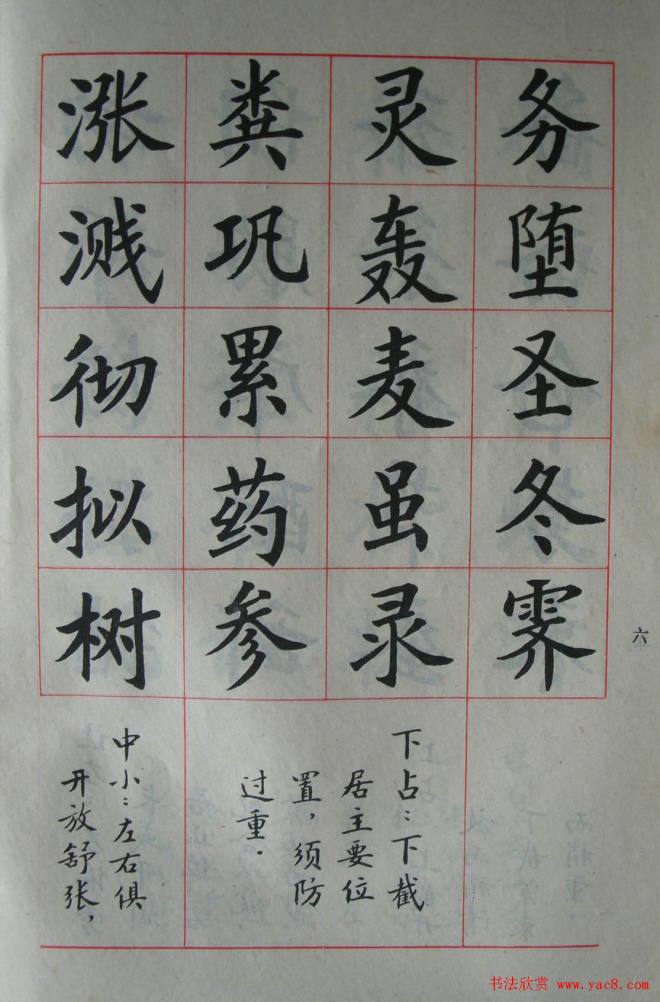 务堕圣冬霁
灵轰麦虽录
粪巩累药参
涨溅彻拟树
下占：下截
居主要位
置，须防
过重。
中小：左右俱
开放舒张，
六
书法欣赏 www.yac8.com